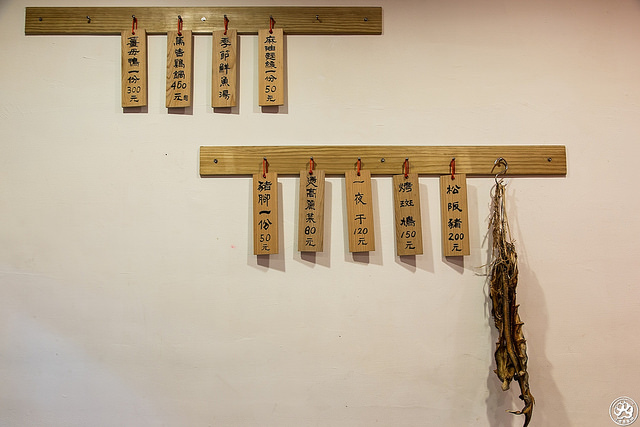 薑母鴨一份300元
馬告鷄鍋450元
季節鮮魚湯
麻油麵線一份50元
豬腳一份50元
炭高麗菜80元
一夜干120元
烤斑鳩150元
松阪豬200元